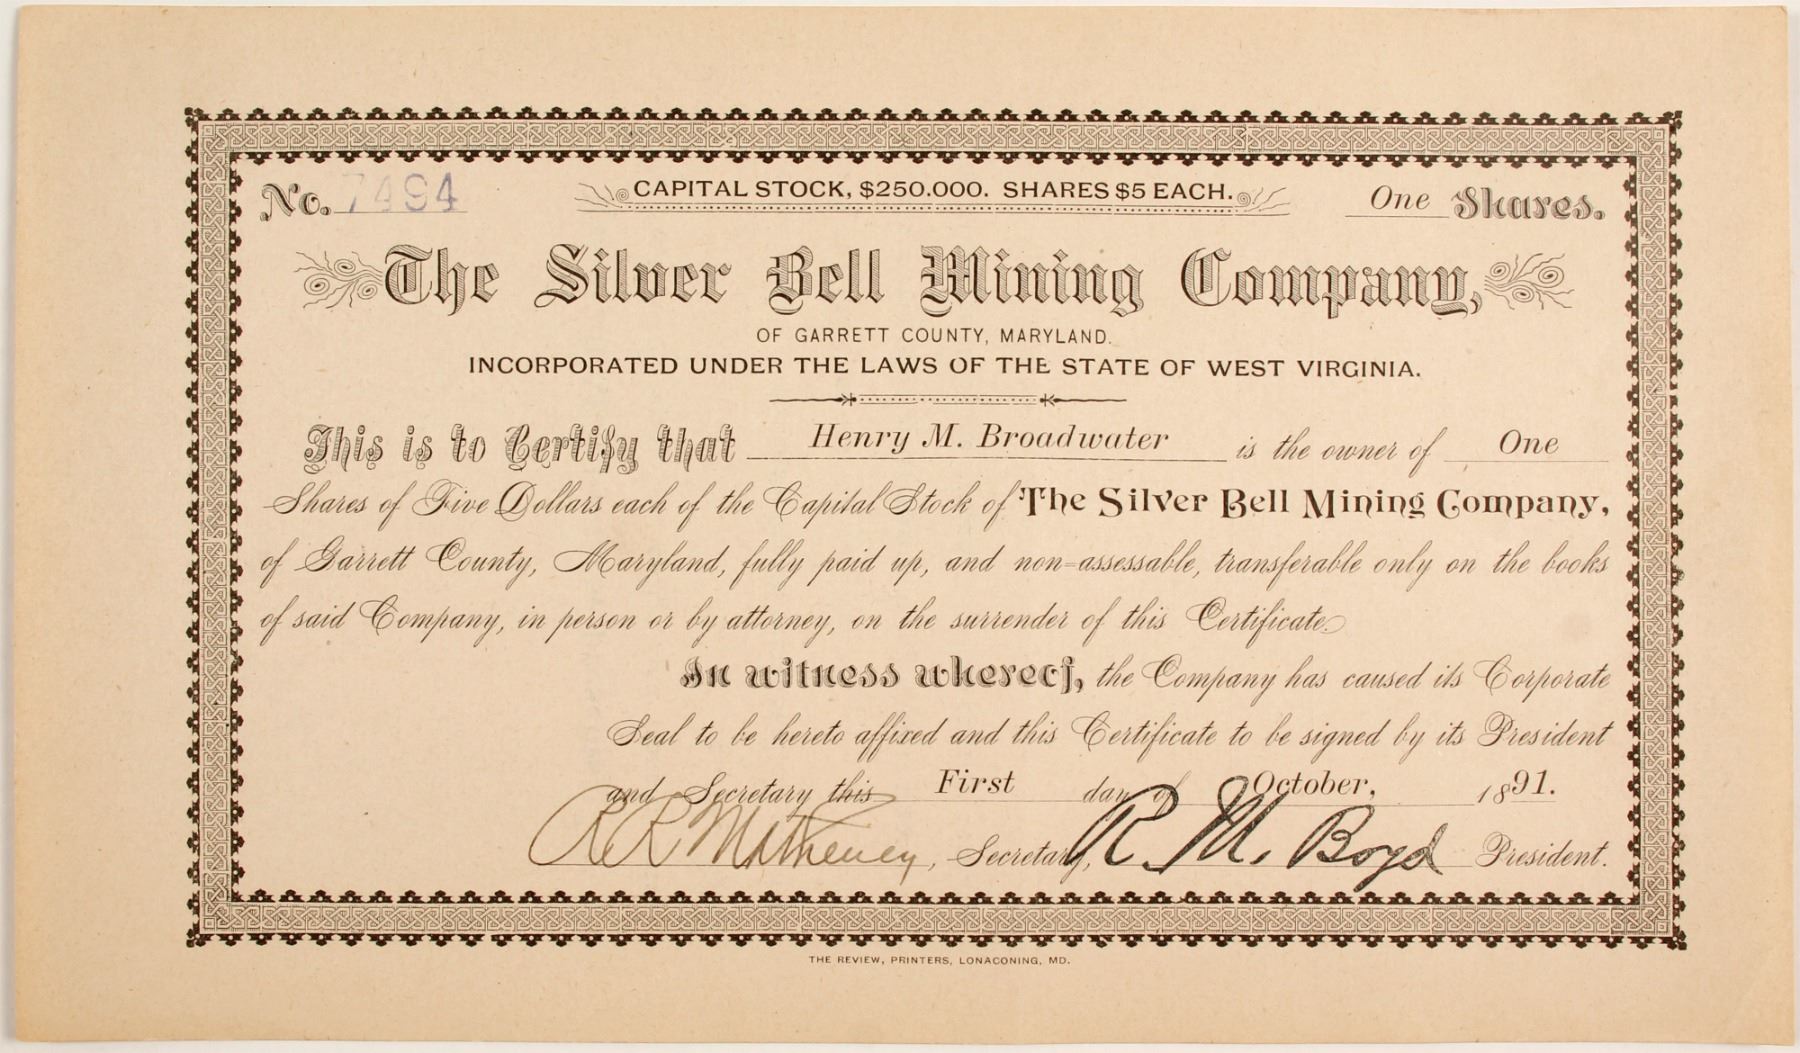 No. 7494 CAPITAL STOCK, $250.000. SHARES $5 EACH. One Shares.
The Silver Bell Mining Company,
OF GARRETT COUNTY, MARYLAND.
INCORPORATED UNDER THE LAWS OF THE STATE OF WEST VIRGINIA.
This is to Certify that Henry M. Broadwater is the owner of One
Shares of Five Dollars each of the Capital Stock of The Silver Bell Mining Company,
of Garrett County, Maryland, fully paid up, and non-assessable, transferable only on the books
of said Company, in person or by attorney, on the surrender of this Certificate.
In witness whereof, the Company has caused its Corporate
Seal to be hereto affixed and this Certificate to be signed by its President
and Secretary this First day of October, 1891.
R. M. Boyd
Secretary, President.
THE REVIEW, PRINTERS, LONACONING, MD.